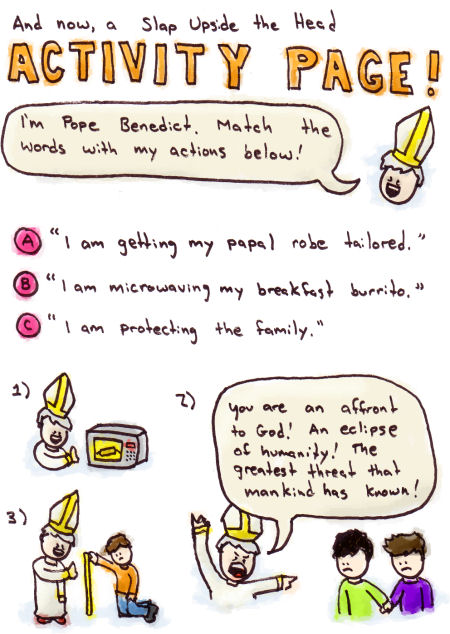 And now, a Slap Upside the Head
ACTIVITY PAGE!
I'm Pope Benedict. Match the
words with my actions below!
A "I am getting my papal robe tailored."
B "I am microwaving my breakfast burrito."
C "I am protecting the family."
1)
2)
you are an affront
to God! An eclipse
of humanity! The
greatest threat that
mankind has known!
3)